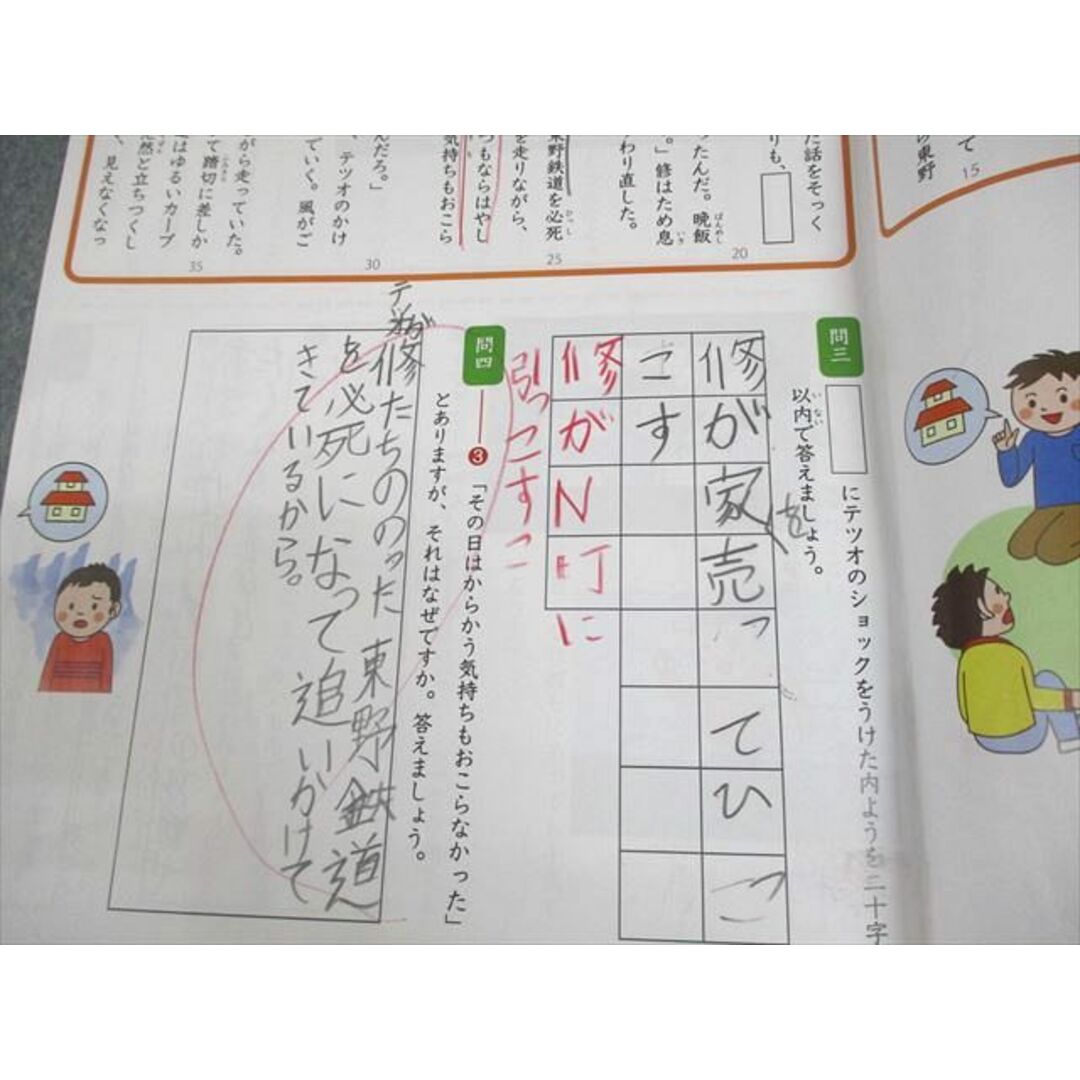 て
ら東野
15
た話をそっく
りも、
ったんだ。晩飯
ばんめし
。」修はため息
いき
わり直した。
20
東野鉄道を必死
ひっし
を走りながら、
つもならはやし
気持ちもおこら
25
んだろ。」
、テツオのかけ
ていく。風がご
30
がら走っていた。
て踏切に差しか
ふみきり
はゆるいカーブ
然と立ちつくし
、見えなくなっ
35
問三
にテツオのショックをうけた内ようを二十字
以内で答えましょう。
いない
修が家売ってひっ
を
こす
修がN町に
引っこすこ
問四
❸「その日はからかう気持ちもおこらなかった」
とありますが、それはなぜですか。答えましょう。
テツオが
修たちののった東野鉄道
を必死になって追いかけて
きているから。